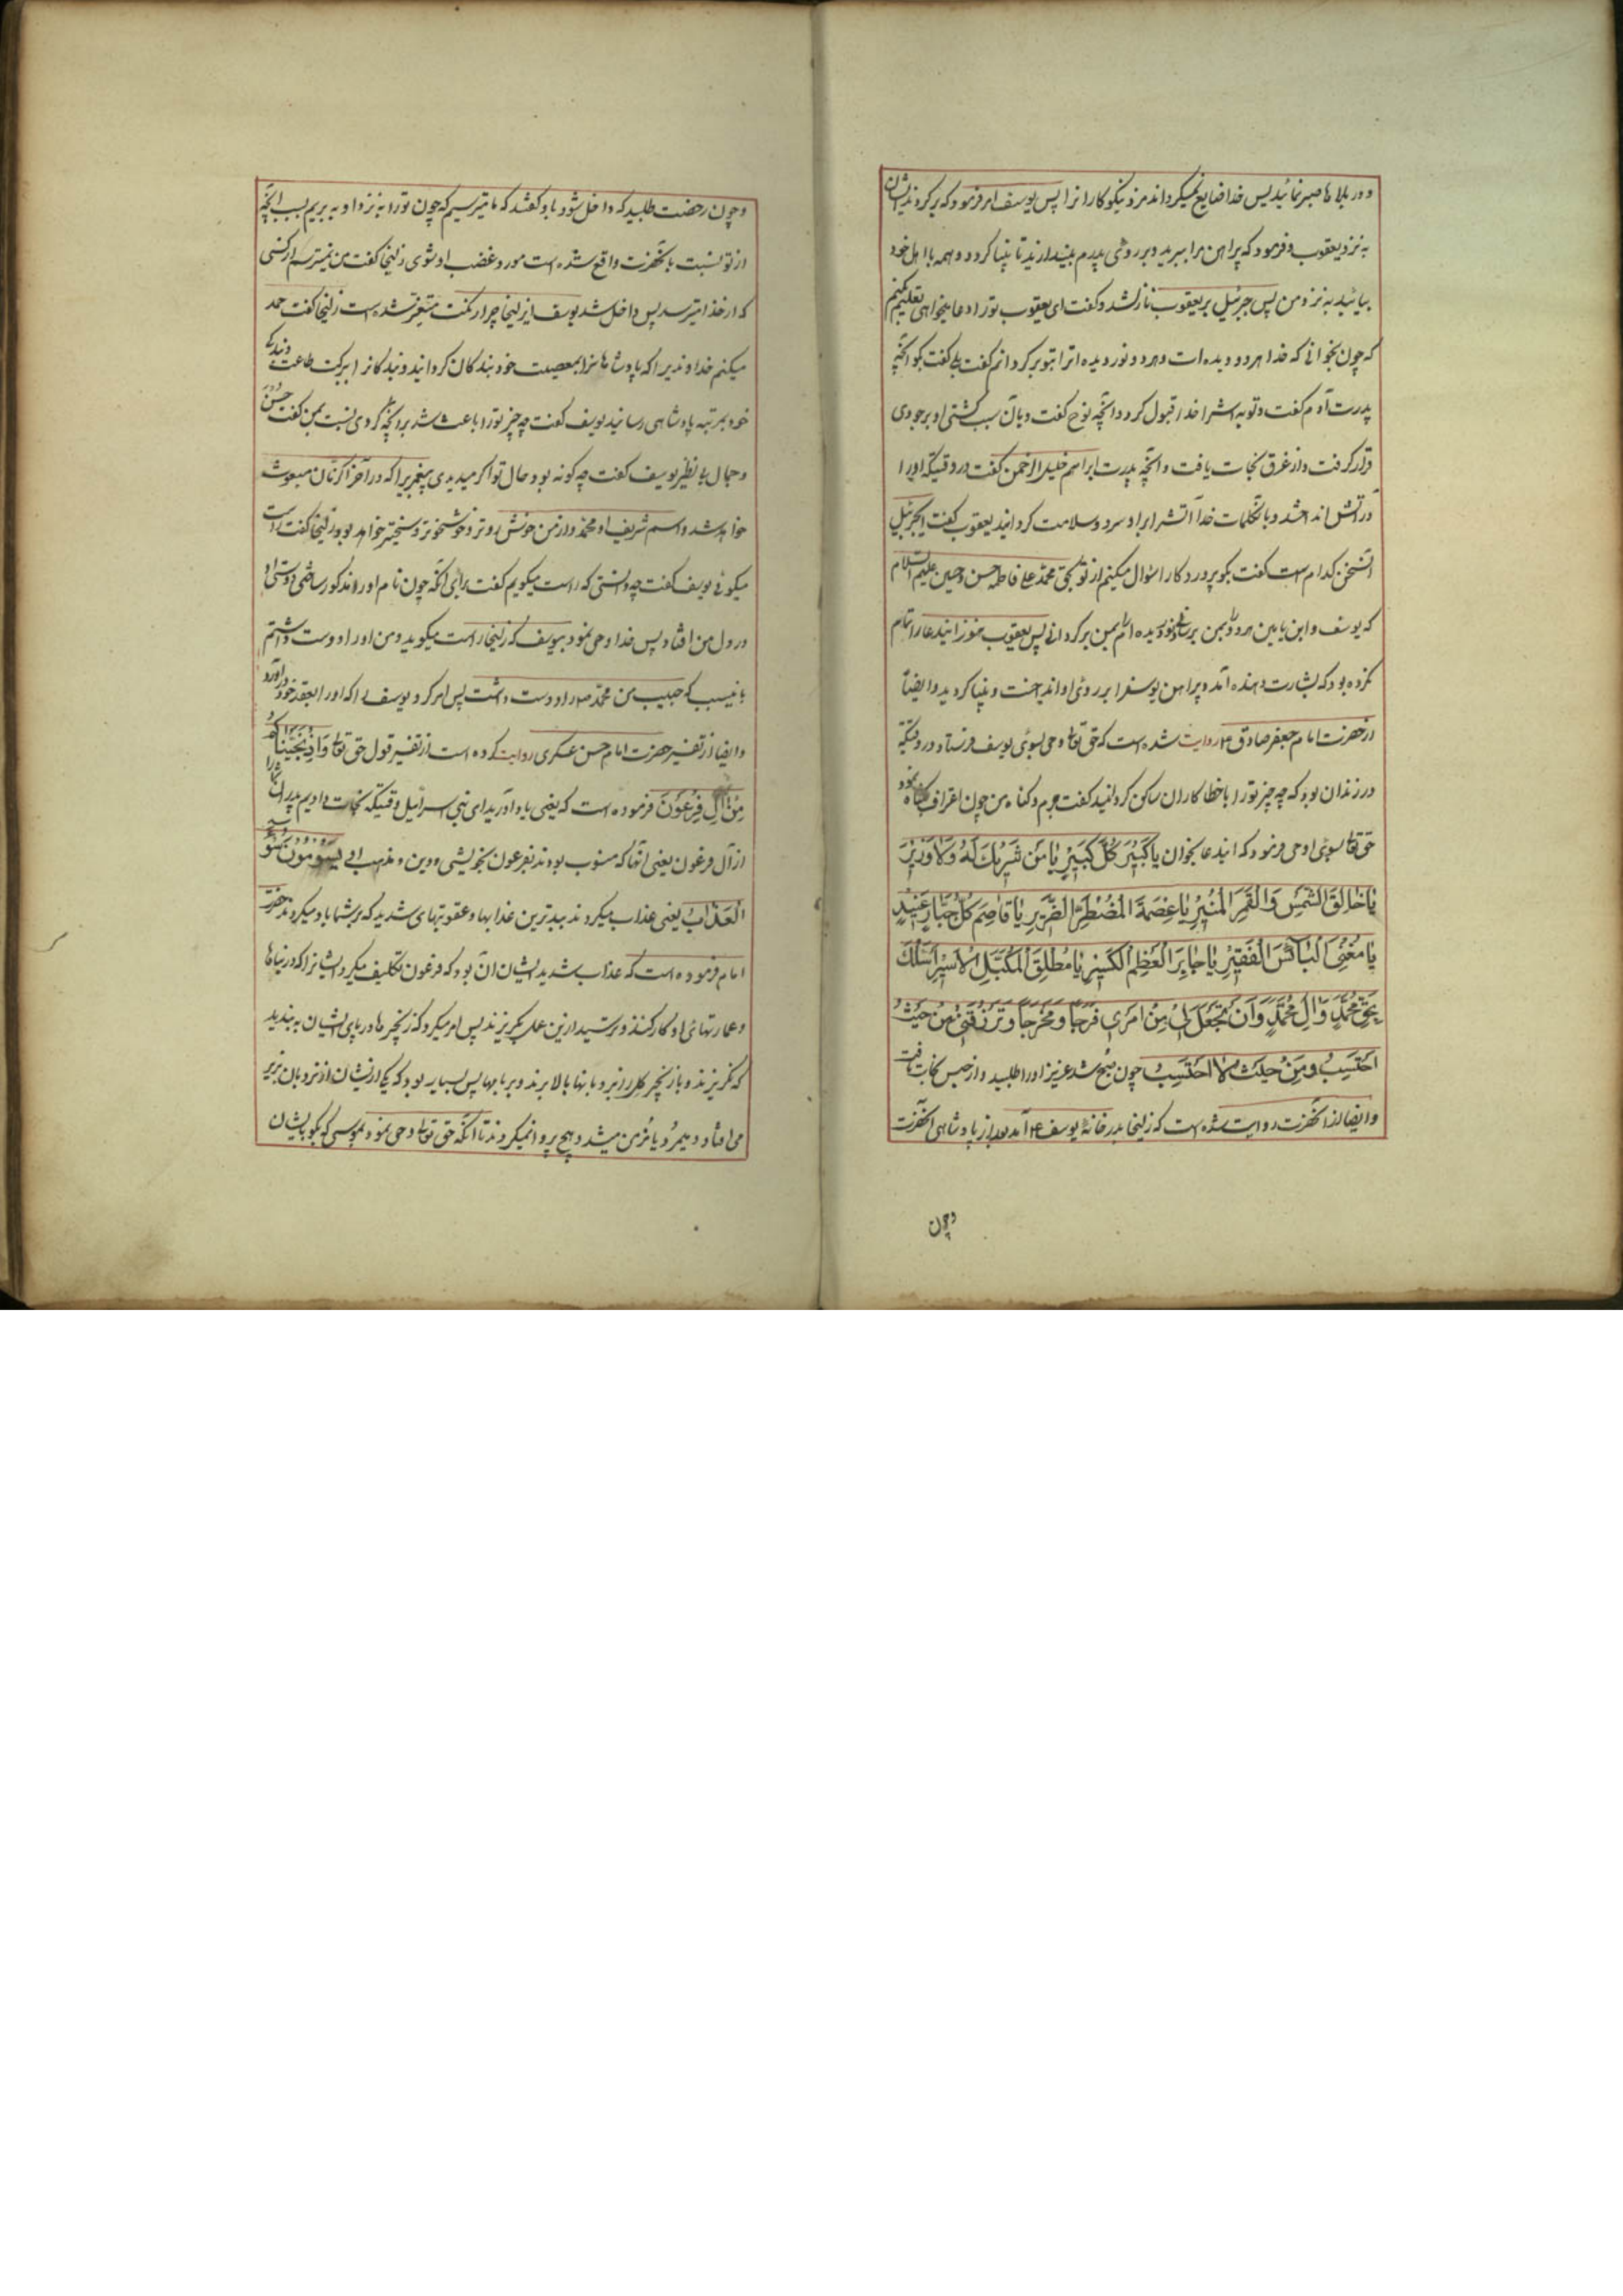 و در بلاها صبر نمائید پس خدا ضایع نمیگرداند مزد نیکوکارانرا پس یوسف امر فرمود که برگردند ایشان
به نزد یعقوب و فرمود که پیراهن مرا ببرید و بر روی پدرم بیندازید تا بینا گردد و همه با اهل خود
بیائید به نزد من پس جبرئیل بر یعقوب نازل شد و گفت ای یعقوب تو را دعا میخواهی تعلیم کنیم
که چون بخوانی که خدا هر دو دیده‌ات و هر دو نور دیده اترا بتو برگردانم گفت بلی گفت بگو آنچه
پدرت آدم گفت و توبه‌اشرا خدا قبول کرد و آنچه نوح گفت و بآن سبب کشتی او بر جودی
قرار گرفت و از غرق نجات یافت و آنچه پدرت ابراهیم خلیل الرحمن گفت در وقتیکه او را
در آتش انداختند و بآنکلمات خدا آتشرا بر او سرد و سلامت گردانید یعقوب گفت ای جبرئیل
آنسخن کدام است گفت بگو پروردگارا سؤال میکنم از تو بحق محمد علی فاطمه حسن و حسین علیهم السلام
که یوسف و ابن یامین هر دو را بمن برسانی و نور دیده ام را بمن برگردانی پس یعقوب هنوز ایندعا را تمام
نکرده بود که بشارت دهنده آمد و پیراهن یوسفرا بر روی او انداخت و بینا گردید و ایضاً
از حضرت امام جعفر صادق ع روایت شده است که حق تعالی وحی بسوی یوسف فرستاد در وقتیکه
در زندان بود که چه چیز تو را با خطاکاران ساکن گردانید گفت جرم و گناه من چون اعتراف بگناه نمود
حق تعالی بسوی او وحی فرمود که ایندعا بخوان یا کَبیرَ کُلِّ کَبیرٍ یا مَن لا شَریكَ لَهُ وَلا وَزیرَ
یا خالِقَ الشَّمسِ وَالقَمَرِ المُنیرِ یا عِصمَةَ المُضطَرِّ الضَّریرِ یا قاصِمَ کُلِّ جَبّارٍ عَنیدٍ
یا مُغنِیَ البآئِسِ الفَقیرِ یا جابِرَ العَظمِ الکَسیرِ یا مُطلِقَ المُکَبَّلِ الاَسیرِ اَسئَلُكَ
بِحَقِّ مُحَمَّدٍ وَآلِ مُحَمَّدٍ وَاَن تَجعَلَ لی مِن اَمری فَرَجاً وَمَخرَجاً وَتَرزُقَنی مِن حَیثُ
اَحتَسِبُ وَمِن حَیثُ لا اَحتَسِبُ چون صبح شد عزیز او را طلبید و از حبس نجات یافت
و ایضا از آنحضرت روایت شده است که زلیخا بدر خانهٔ یوسف ع آمد بعد از پادشاهی آنحضرت
و چون
و چون رخصت طلبید که داخل شود باو گفتند که ما میترسیم که چون تو را به نزد او به بریم بسبب آنچه
از تو نسبت بآنحضرت واقع شده است مورد غضب او شوی زلیخا گفت من نمیترسم از کسی
که از خدا میترسد پس داخل شد یوسف ای زلیخا چرا رنگت متغیر شده است زلیخا گفت حمد
میکنم خداوندیرا که پادشاهانرا بمعصیت خود بندگان گردانید و بندگانرا ببرکت طاعت و بندگی
خود بمرتبه پادشاهی رسانید یوسف گفت چه چیز تو را باعث شد بر آنچه کردی نسبت بمن گفت حسن
و جمال بی نظیر یوسف گفت چه گونه بود حال تو اگر میدیدی پیغمبریرا که در آخر الزمان مبعوث
خواهد شد و اسم شریف او محمد و از من خوش رو تر و خوشخوتر و سخیتر خواهد بود زلیخا گفت راست
میگوئی یوسف گفت چه دانستی که راست میگویم گفت برای آنکه چون نام او را مذکور ساختی دوستی او
در دل من افتاد پس خدا وحی نمود بیوسف که زلیخا راست میگوید و من او را دوست داشتم
باینسبب که حبیب من محمد ص را دوست داشت پس امر کرد یوسف را که او را بعقد خود درآورد
و ایضا از تفسیر حضرت امام حسن عسکری روایت کرده است از تفسیر قول حق تعالی وَاِذ نَجَّیناکُم
مِن آلِ فِرعَونَ فرموده است که یعنی یاد آورید ای بنی اسرائیل وقتیکه نجات دادیم پدران شما را
از آل فرعون یعنی آنها که منسوب بودند بفرعون بخویشی و دین و مذهب او یَسُومُونَکُم سُوءَ
العَذاب یعنی عذاب میکردند ببدترین عذابها و عقوبتهای شدید که بر شما بار میکردند حضرت
امام فرموده است که عذاب شدید ایشان آن بود که فرعون تکلیف میکرد ایشانرا که در بناها
و عمارتهای او کار کنند و میترسید از این عمل بگریزند پس امر میکرد که زنجیرها در پای ایشان به بندید
که نگریزند و با زنجیر گل را از نردبانها بالا برند و بر بامها پس بسیار بود که یکی از ایشان از نردبان بزیر
می افتاد و میمرد یا مزمن میشد و هیچ پروا نمیکردند تا آنکه حق تعالی وحی نمود بموسی که بگو بایشان